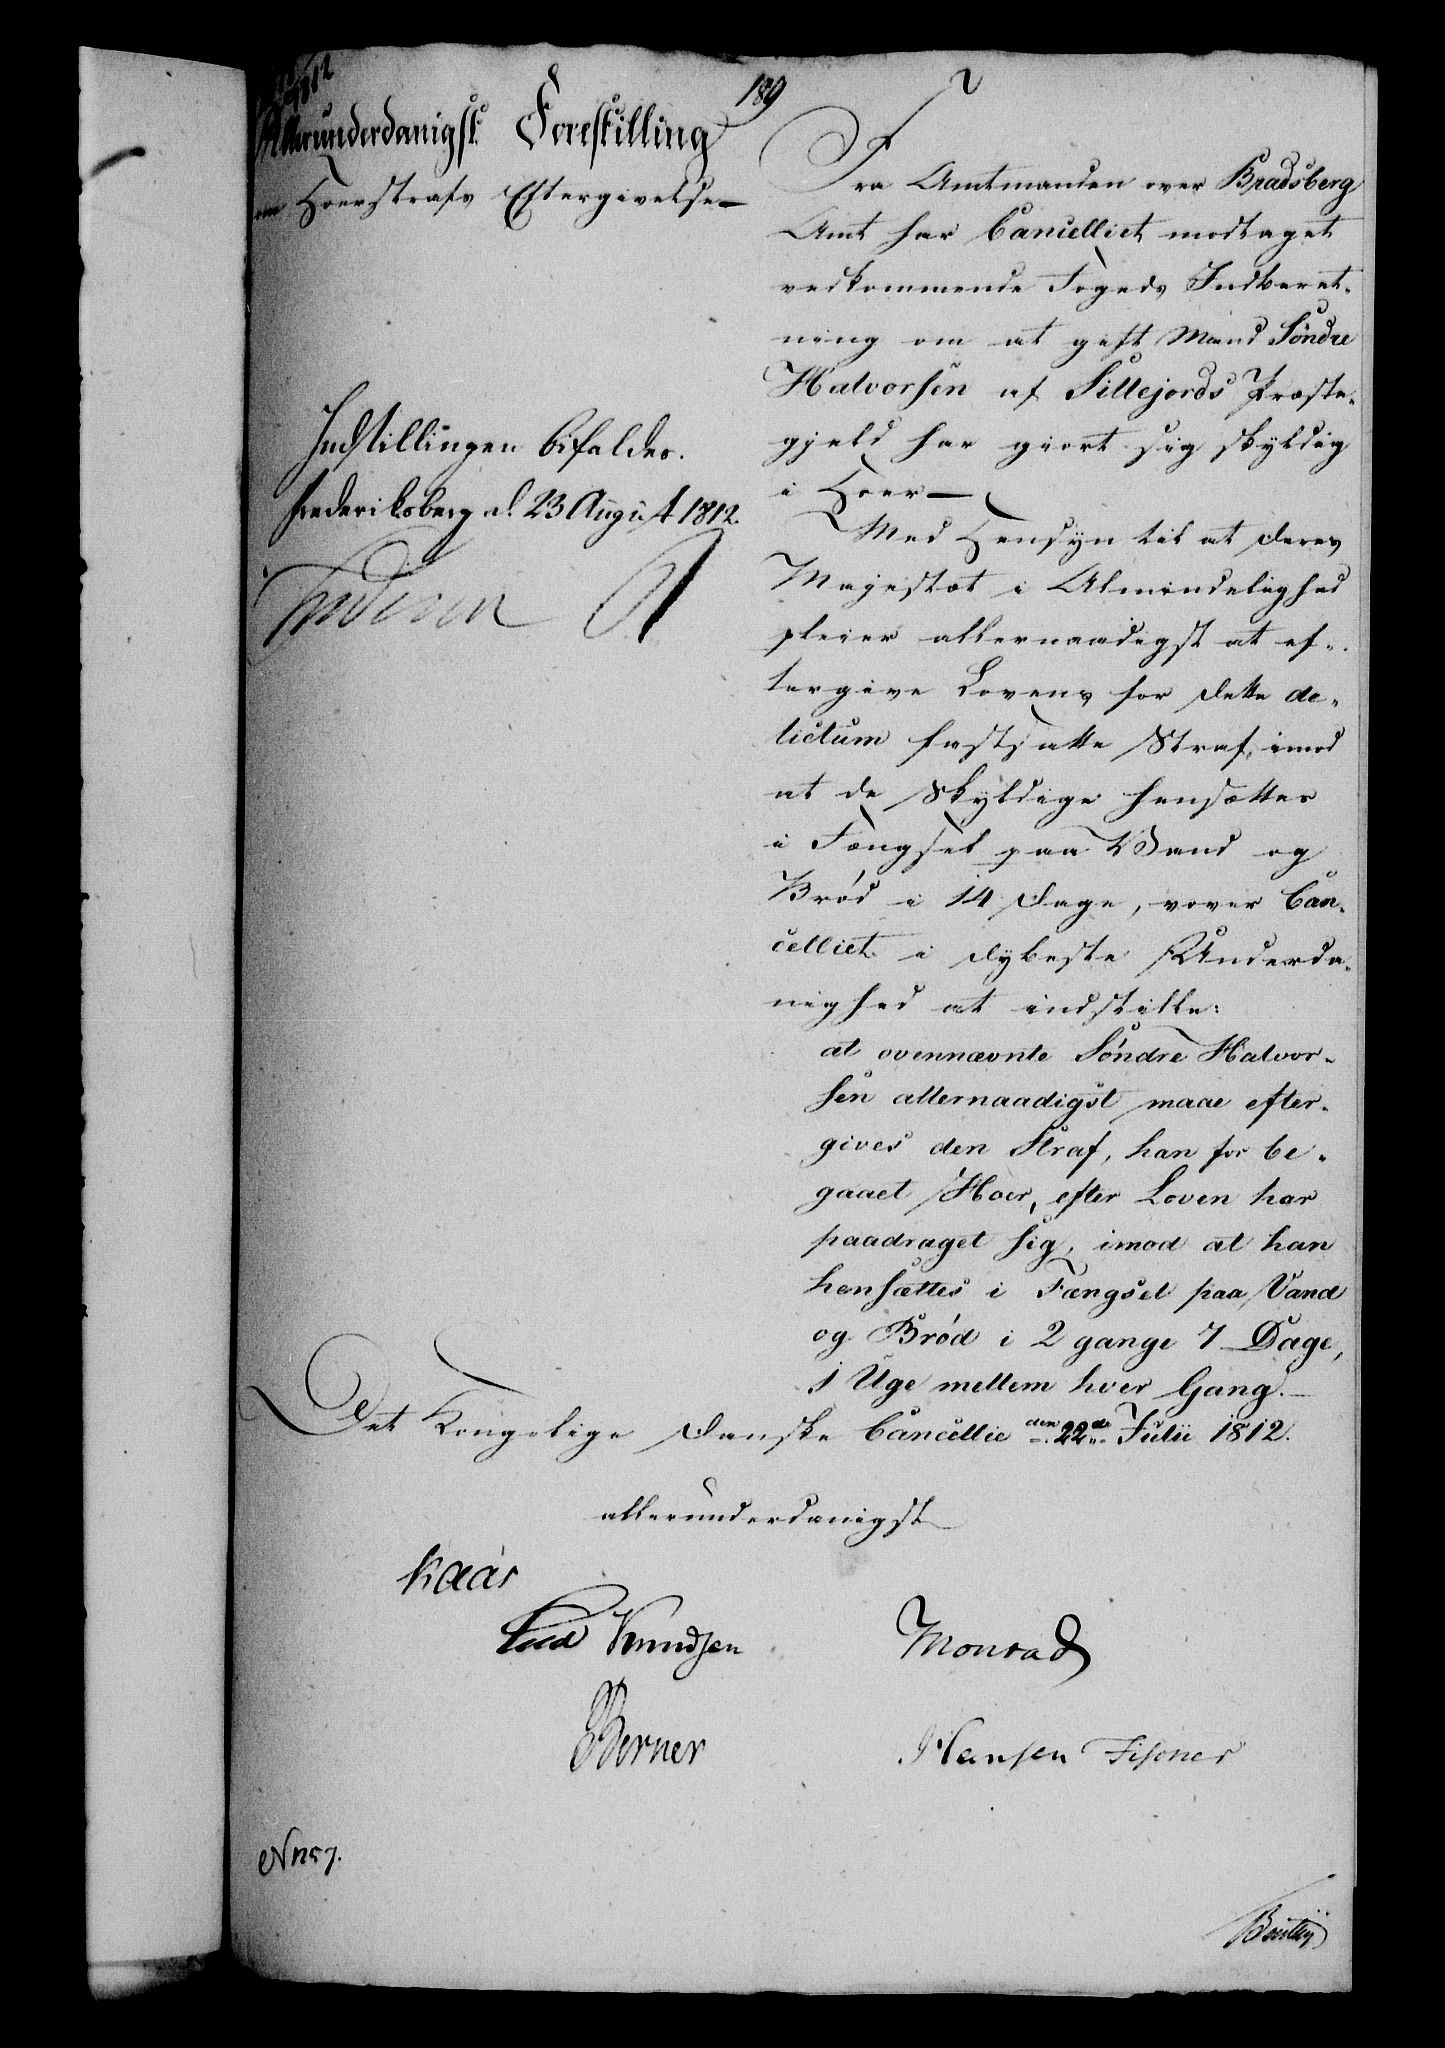 189
Allerunderdanigst Forestilling
om Hoerstrafs Eftergivelse
Indstillingen bifaldes.
Frederiksberg d. 23 August 1812.
Fra Amtmanden over Bradsberg
Amt har Cancelliet modtaget
vedkommende Fogeds Indberet-
ning om at gift Mand Söndre
Halvorsen af Sillejords Præste-
gjeld har giort sig skyldig
i Hoer
Med Hensyn til at Deres
Majestæt i Almindelighed
pleier allernaadigst at ef-
tergive Lovens for dette de-
lictum fastsatte Straf, imod
at de Skyldige hensættes
i Fængsel paa Vand og
Bröd i 14 Dage, vover Can-
celliet i dybeste Underda-
nighed at indstille:
at ovennævnte Söndre Halvor-
sen allernaadigst maae efter-
gives den Straf, han for be-
gaaet Hoer, efter Loven har
paadraget sig, imod at han
hensættes i Fængsel paa Vand
og Bröd i 2 gange 7 Dage,
1 Uge mellem hver Gang.
Det Kongelige Danske Cancellie den 22de Julii 1812.
allerunderdanigst
Kaas
Knudsen Monrad
Berner Hansen